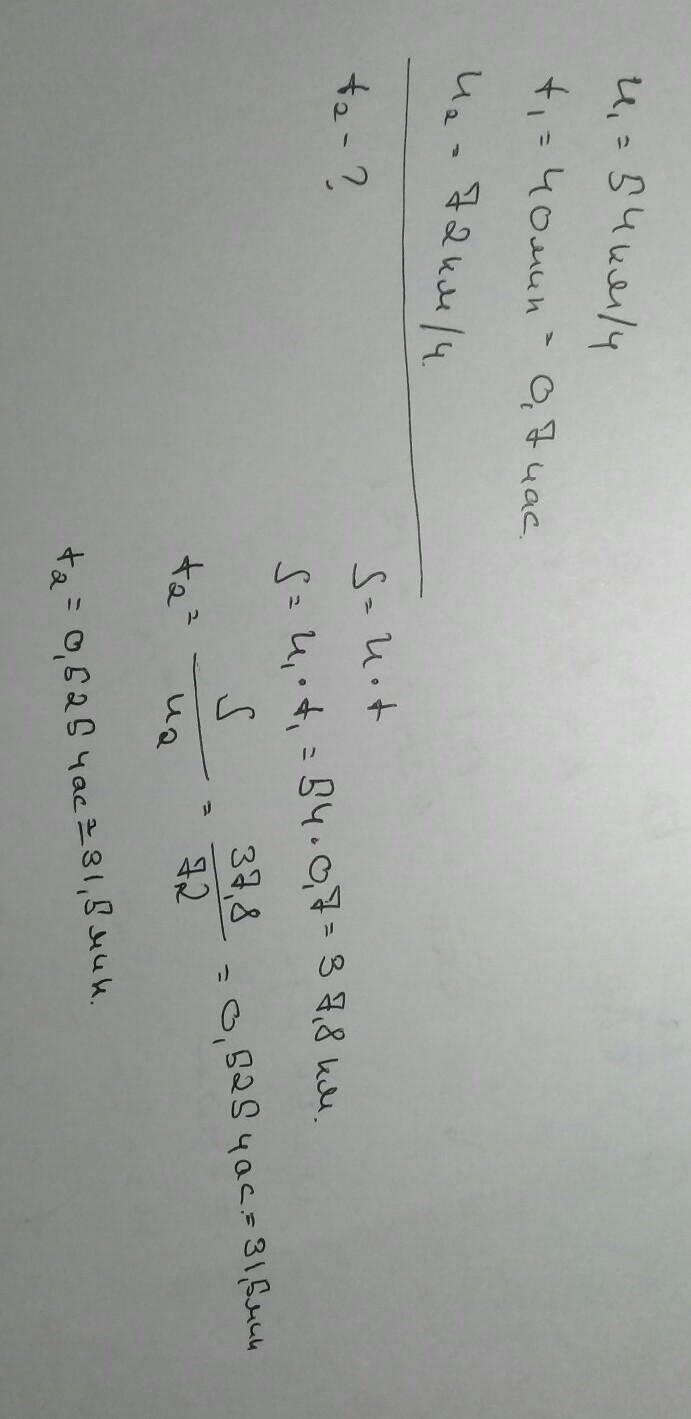 u₁ = 54 км/ч
t₁ = 40 мин = 0,7 час.
u₂ = 72 км/ч.
t₂ - ?
S = u · t
S = u₁ · t₁ = 54 · 0,7 = 37,8 км.
t₂ = S/u₂ = 37,8/72 = 0,525 час. = 31,5 мин
t₂ = 0,525 час = 31,5 мин.